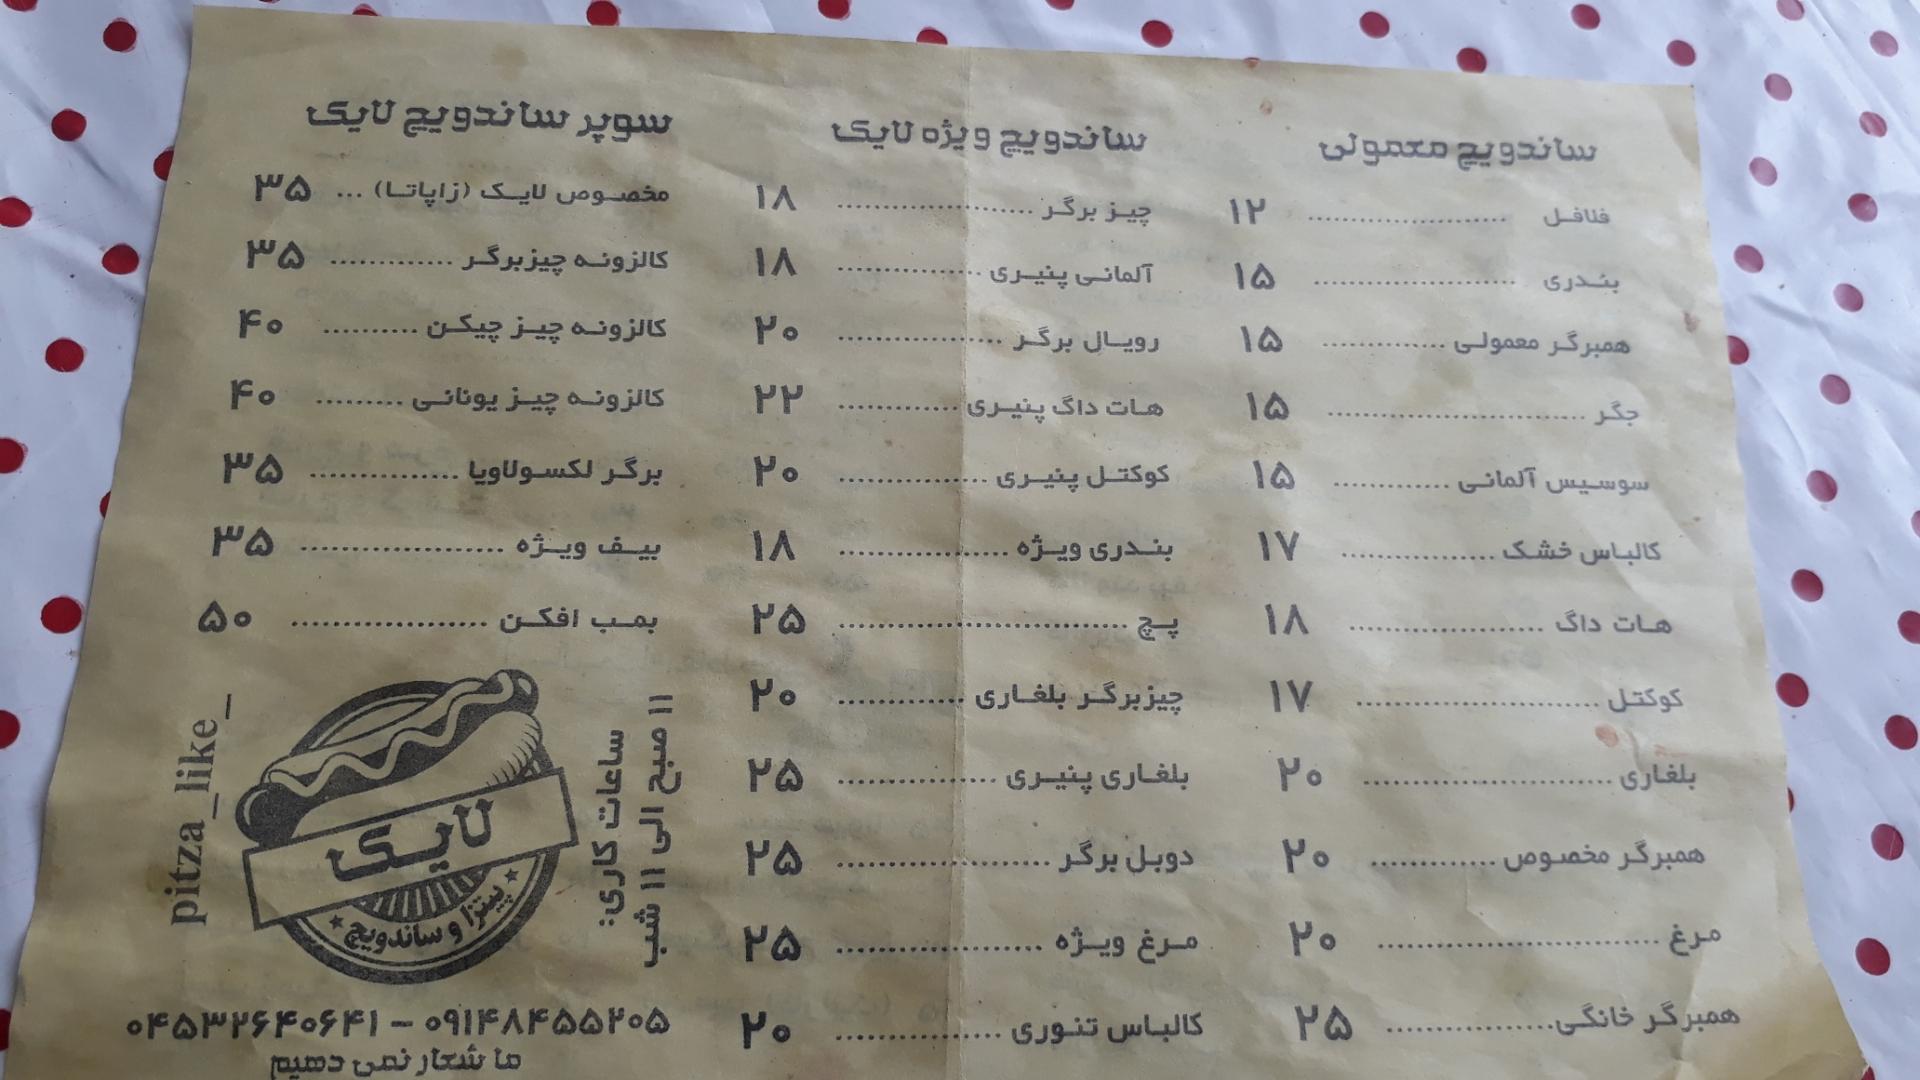 ساندویچ معمولی
فلافل ........................ ۱۲
بندری ........................ ۱۵
همبرگر معمولی ............... ۱۵
جگر ............................... ۱۵
سوسیس آلمانی .............. ۱۵
کالباس خشک ................... ۱۷
هات داگ ........................ ۱۸
کوکتل ............................. ۱۷
بلغاری ............................. ۲۰
همبرگر مخصوص ............... ۲۰
مرغ ................................. ۲۰
همبرگر خانگی.................... ۲۵
ساندویچ ویژه لایک
چیز برگر ........................ ۱۸
آلمانی پنیری ................. ۱۸
رویال برگر .................... ۲۰
هات داگ پنیری .............. ۲۲
کوکتل پنیری .................. ۲۰
بندری ویژه .................... ۱۸
پچ ................................... ۲۵
چیزبرگر بلغاری ............... ۲۰
بلغاری پنیری ................... ۲۵
دوبل برگر ......................... ۲۵
مرغ ویژه ......................... ۲۵
کالباس تنوری .................... ۲۰
سوپر ساندویچ لایک
مخصوص لایک (زاپاتا) ... ۳۵
کالزونه چیزبرگر ............. ۳۵
کالزونه چیز چیکن .......... ۴۰
کالزونه چیز یونانی ......... ۴۰
برگر لکسولاویا ............... ۳۵
بیف ویژه ..................... ۳۵
بمب افکن .................... ۵۰
ساعات کاری:
۱۱ صبح الی ۱۱ شب
لایک
پیتزا و ساندویچ
pitza_like_
۰۴۵۳۲۶۴۰۶۴۱ – ۰۹۱۴۸۴۵۵۲۰۵
ما شعار نمی دهیم